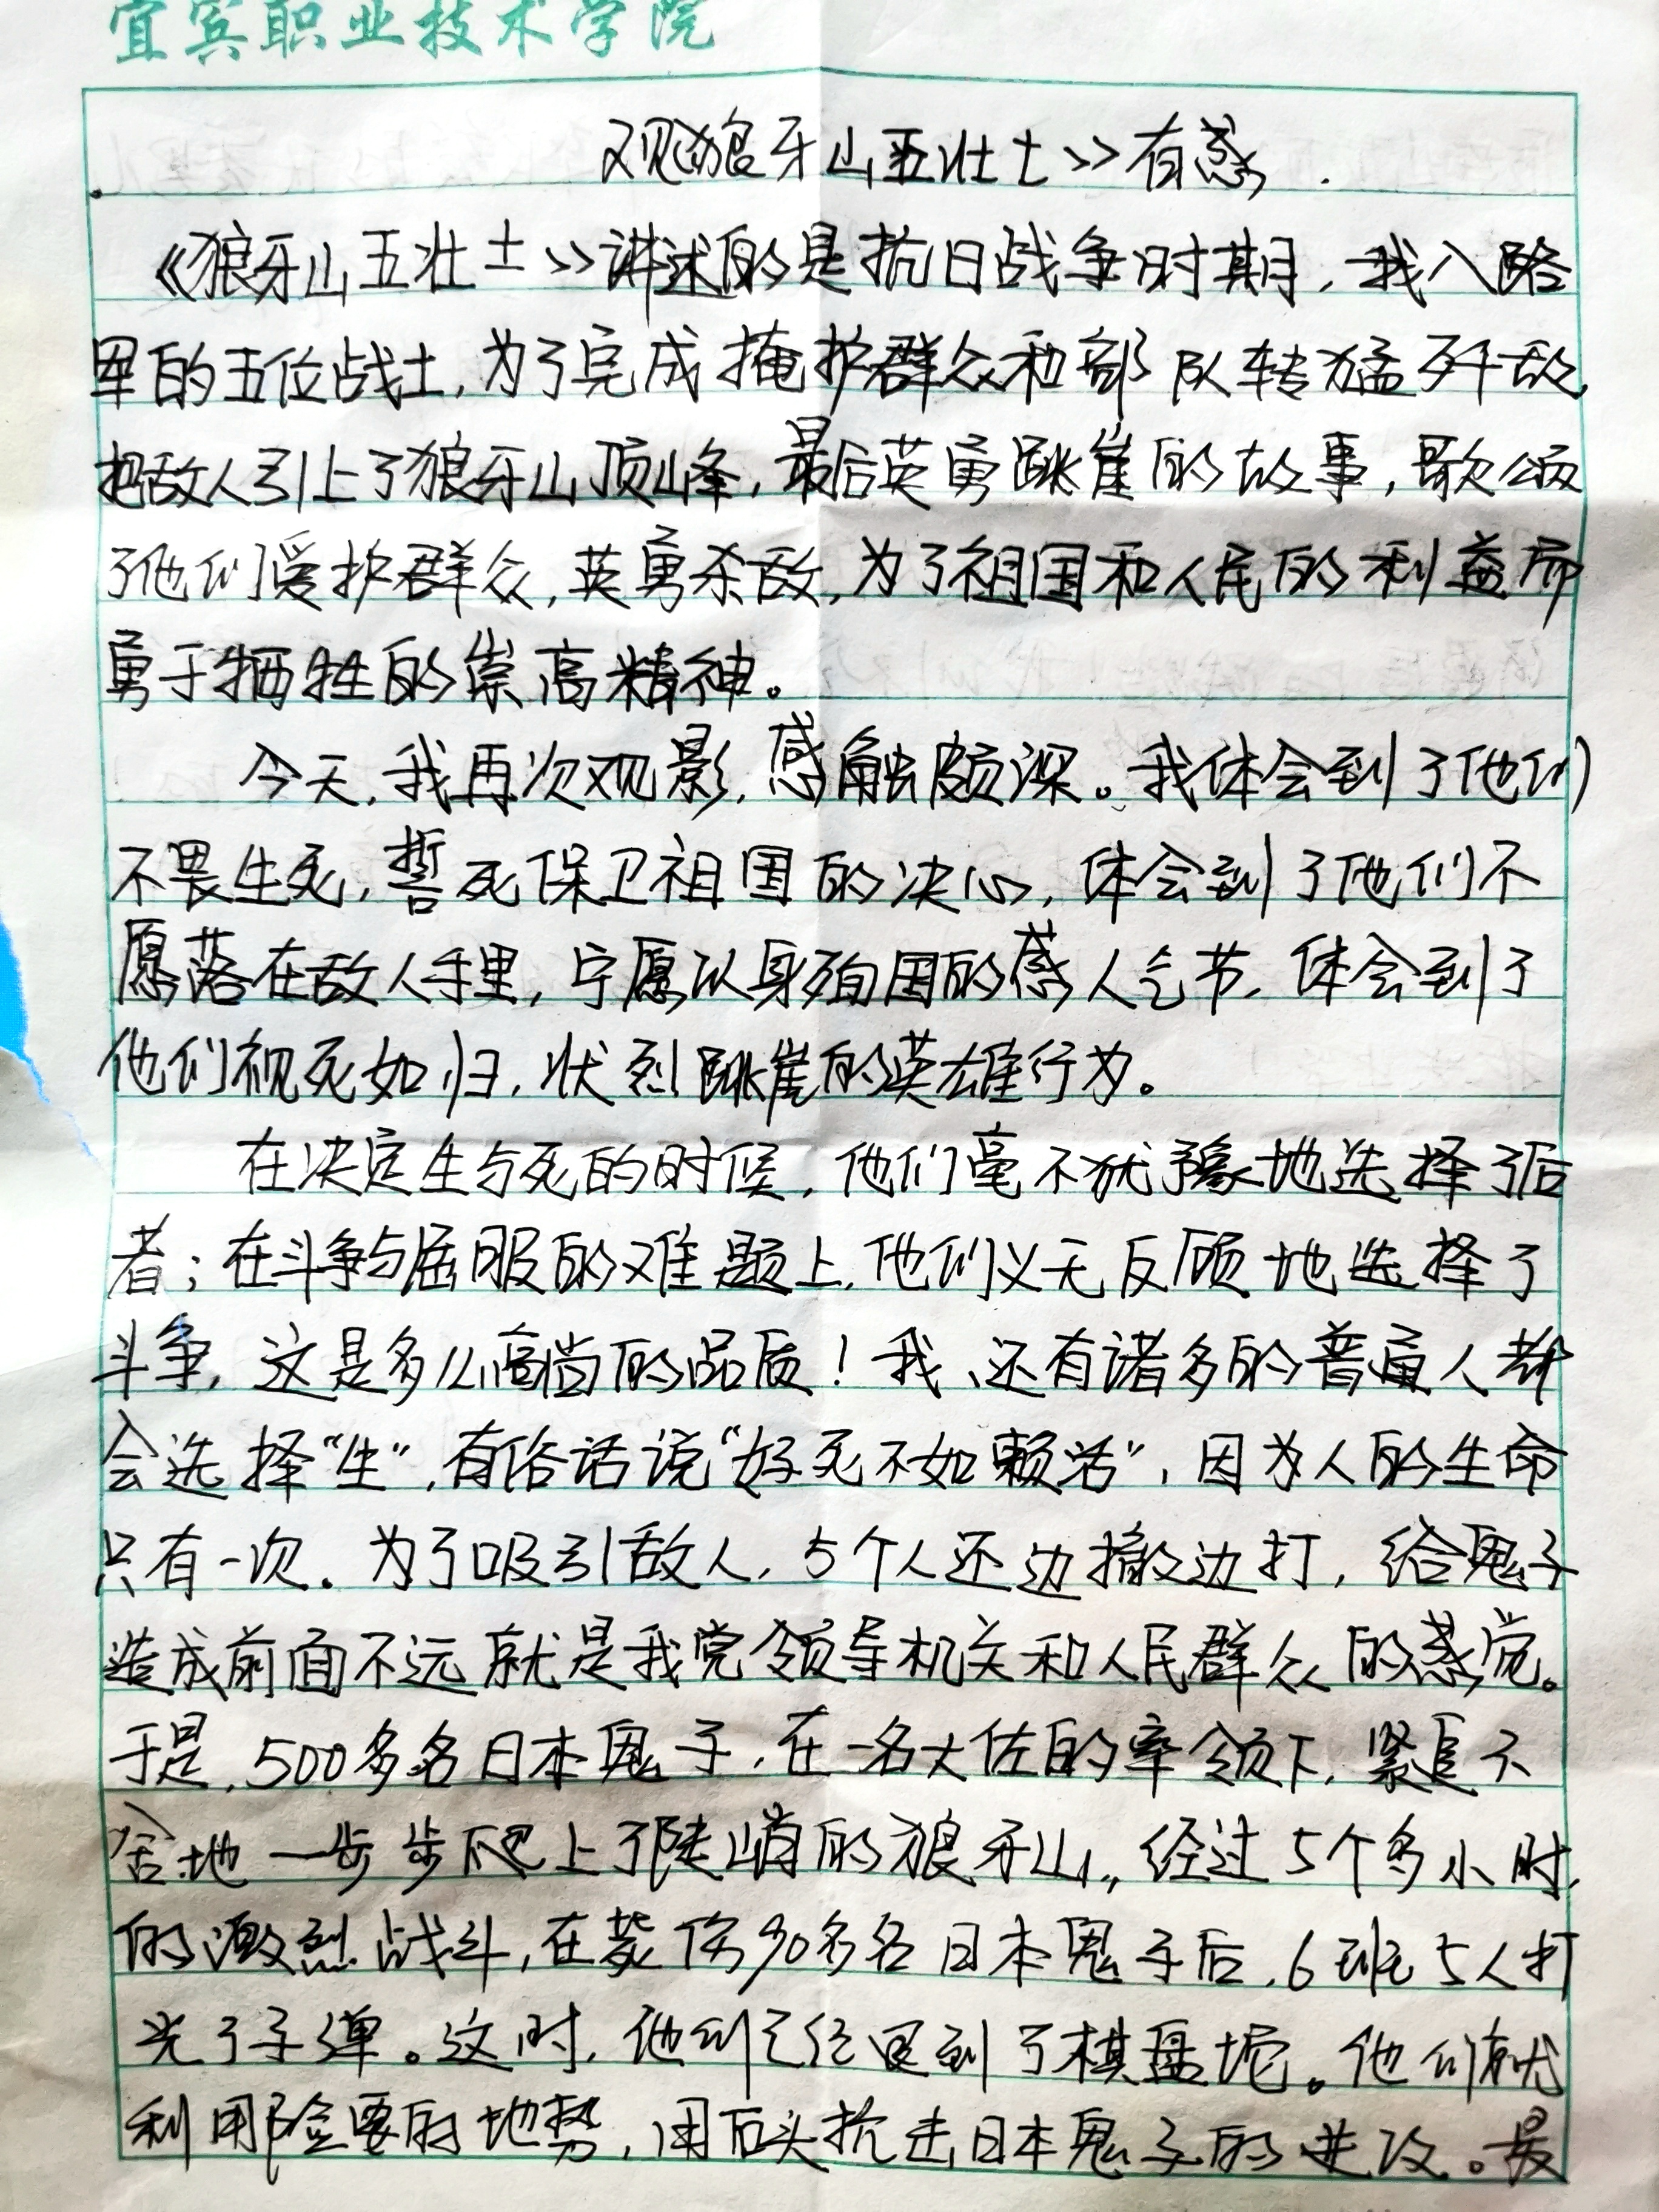 宜宾职业技术学院
观狼牙山五壮士》有感.
《狼牙山五壮士》讲述的是抗日战争时期,我八路
军的五位战士,为了完成掩护群众和部队转猛歼敌,
把敌人引上了狼牙山顶峰,最后英勇跳崖的故事,歌颂
了他们爱护群众,英勇杀敌,为了祖国和人民的利益而
勇于牺牲的崇高精神。
今天,我再次观影,感触颇深。我体会到了他们
不畏生死,誓死保卫祖国的决心,体会到了他们不
愿落在敌人手里,宁愿以身殉国的感人气节,体会到了
他们视死如归,状烈跳崖的英雄行为。
在决定生与死的时候,他们毫不犹豫地选择了后
者;在斗争与屈服的难题上,他们义无反顾地选择了
斗争,这是多么高尚的品质!我、还有诸多的普通人都
会选择“生”,有俗话说“好死不如赖活”,因为人的生命
只有一次.为了吸引敌人,5个人还边撤边打,给鬼子
造成前面不远就是我党领导机关和人民群众的感觉。
于是,500多名日本鬼子,在一名大佐的率领下,紧追不
舍地一步步爬上了陡峭的狼牙山,经过5个多小时,
的激烈战斗,在毙伤90多名日本鬼子后,6班5人打
光了子弹。这时,他们已经退到了棋盘坨。他们就
利用险要的地势,用石头抗击日本鬼子的进攻。最